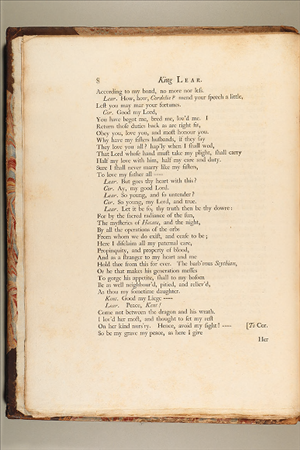 8 King LEAR.
According to my bond, no more nor less.
Lear. How, how, Cordelia? mend your speech a little,
Lest you may mar your fortunes.
Cor. Good my Lord,
You have begot me, bred me, lov'd me. I
Return those duties back as are right fit,
Obey you, love you, and most honour you.
Why have my sisters husbands, if they say
They love you all? hap'ly when I shall wed,
That Lord whose hand must take my plight, shall carry
Half my love with him, half my care and duty.
Sure I shall never marry like my sisters,
To love my father all ----
Lear. But goes thy heart with this?
Cor. Ay, my good Lord.
Lear. So young, and so untender?
Cor. So young, my Lord, and true.
Lear. Let it be so, thy truth then be thy dowre:
For by the sacred radiance of the sun,
The mysteries of Hecate, and the night,
By all the operations of the orbs
From whom we do exist, and cease to be;
Here I disclaim all my paternal care,
Propinquity, and property of blood,
And as a stranger to my heart and me
Hold thee from this for ever. The barb'rous Scythian,
Or he that makes his generation messes
To gorge his appetite, shall to my bosom
Be as well neighbour'd, pitied, and reliev'd,
As thou my sometime daughter.
Kent. Good my Liege ----
Lear. Peace, Kent!
Come not between the dragon and his wrath.
I lov'd her most, and thought to set my rest
On her kind nurs'ry. Hence, avoid my sight! ---- [To Cor.
So be my grave my peace, as here I give
Her